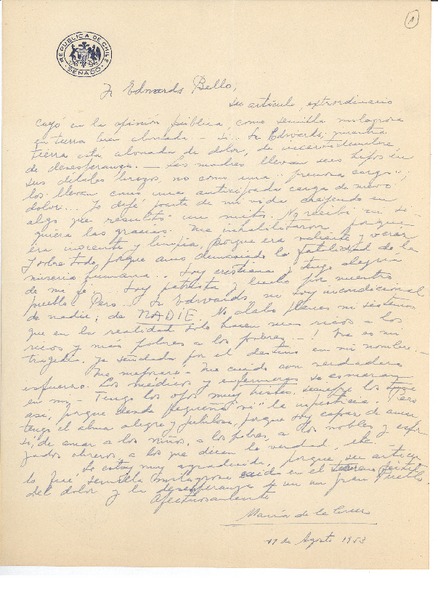 REPUBLICA DE CHILE
SENADO
1
Sr Edwards Bello,
Su artículo, extraordinario
cayó en la opinión pública, como semilla milagrosa
en tierra bien abonada — Sí.. Sr Edwards, nuestra
tierra está abonada de dolor, de incertidumbre,
de desesperanza. — Las madres llevan sus hijos en
sus débiles brazos, no como una "preciosa carga"
los llevan como una anticipada carga de nuevo
dolor. Yo dejé parte de mi vida
algo que resultó un mito. Ni recibo
quiera las gracias. Me inhabilitaron porque
era inocente y limpia, porque era valiente y veraz
y sobre todo, porque amo demasiado la fatalidad de la
miseria humana. Soy cristiana y tengo alegría
de mi fe. Soy patriota y lucho por nuestro
pueblo Pero.. Sr Edwards no soy incondicional
de nadie; de NADIE. No alabo planes ni sistemas
que en la realidad solo hacen más ricos a los
ricos y más pobres a los pobres...! Esa es mi
tragedia ya señalada por el destino en mi nombre. —
Me mejoraré — Me cuido con verdadero
esfuerzo. Los médicos y enfermeras se esmeran
en mí. — Tengo los ojos muy tristes
ase, porque siendo pequeña
tengo el alma alegre y jubilosa, porque soy capaz de amar
sí, de amar a los niños, a los pobres, a los nobles y esfor-
zados obreros a los que dicen la verdad, etc —
Le estoy muy agradecida, porque, su artícu-
lo fué, semilla milagrosa caída en el
del dolor y la desesperanza de un gran Pueblo
Afectuosamente
María de la Cruz
Agosto 1953